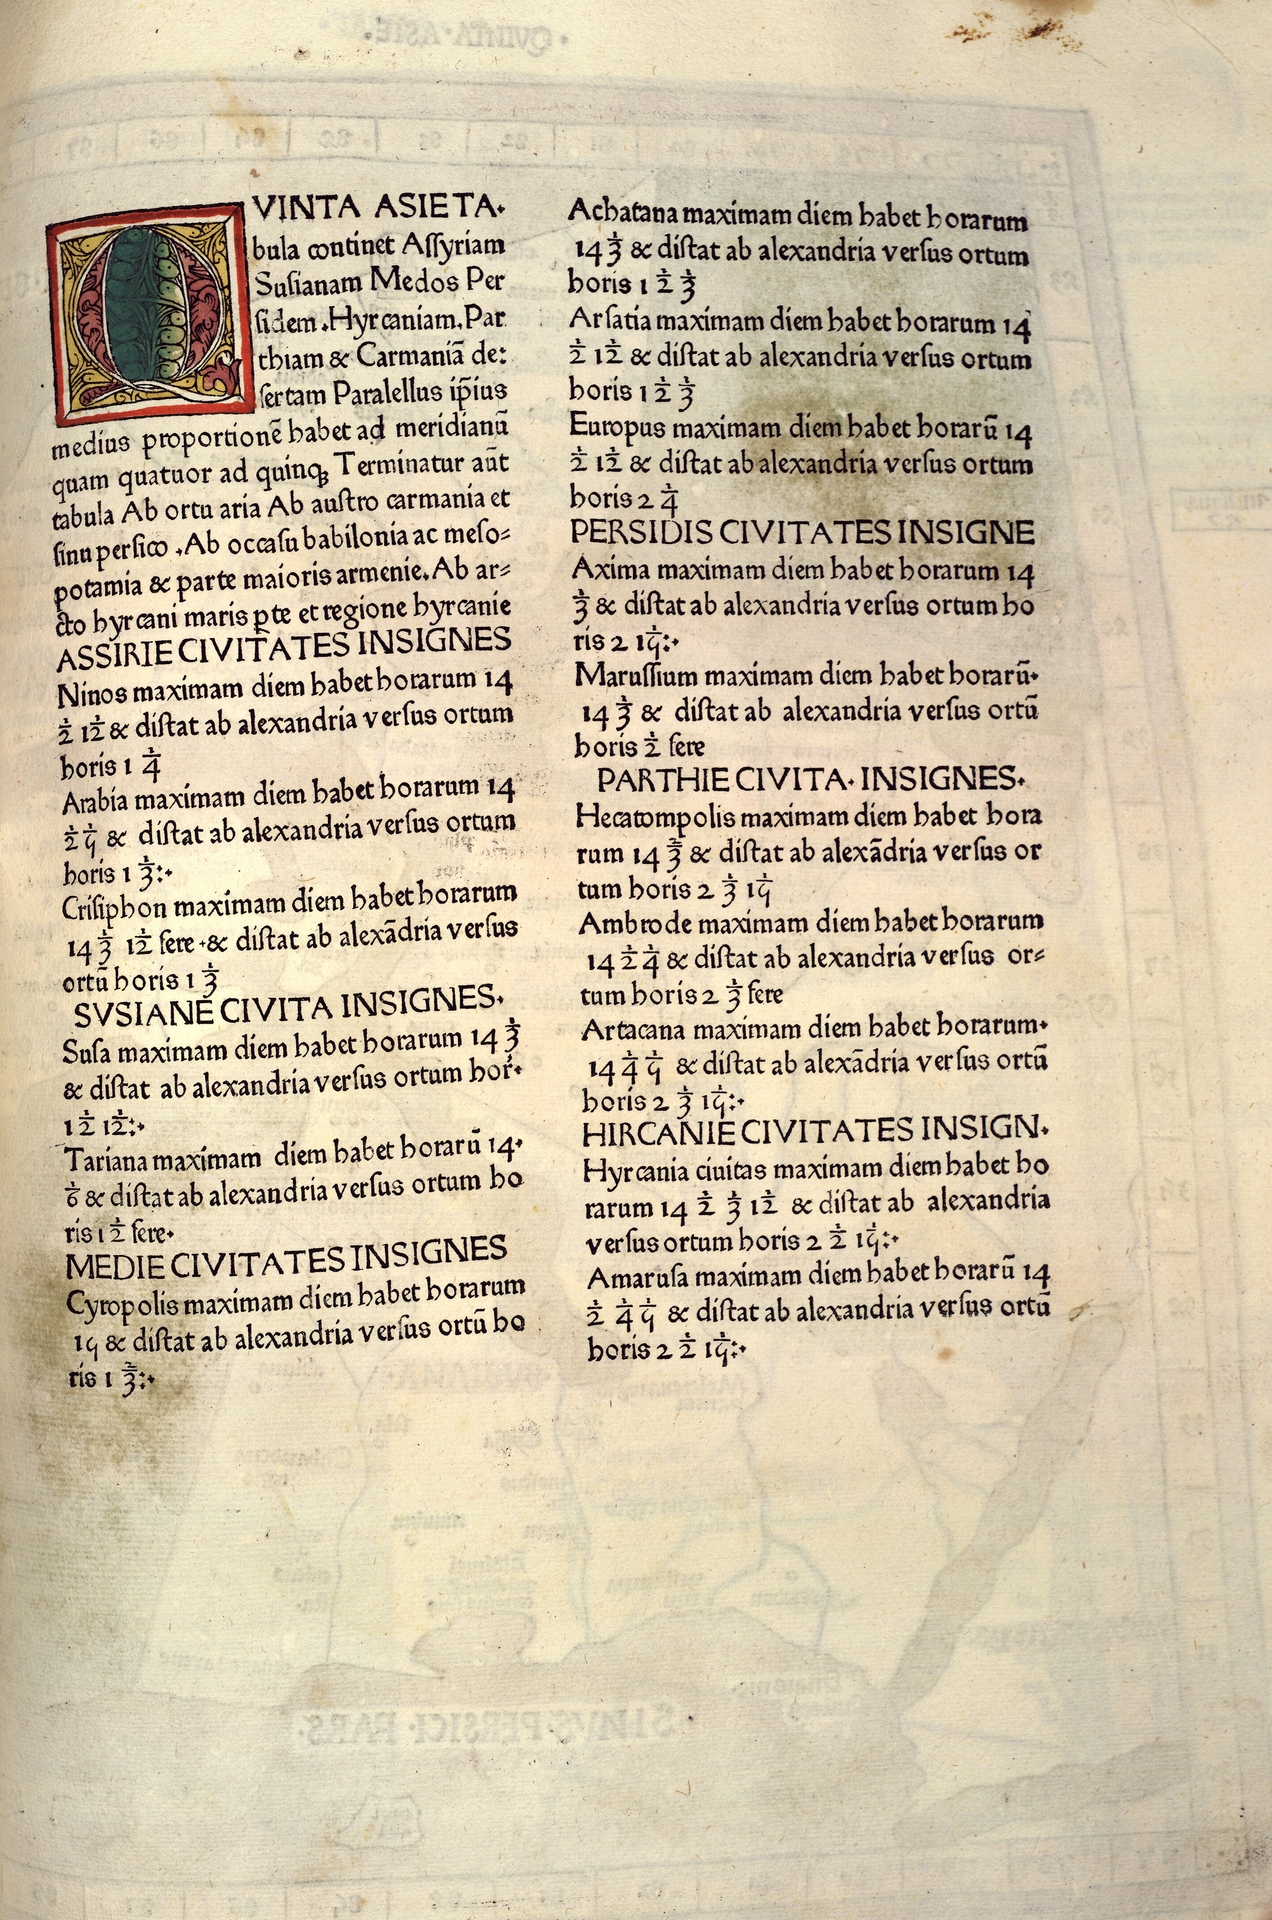 QVINTA ASIE TA·
bula continet Aſſyriam
Suſianam Medos Per
ſidem .Hyrcaniam.Par
thiam & Carmaniā de:
ſertam Paralellus ip̄ius
medius proportionē habet ad meridianū
quam quatuor ad quinqꝫ Terminatur aūt
tabula Ab ortu aria Ab auſtro carmania et
ſinu perſico .Ab occaſu babilonia ac meſo=
potamia & parte maioris armenie.Ab ar=
cto hyrcani maris ꝑte et regione hyrcanie
ASSIRIE CIVITATES INSIGNES
Ninos maximam diem habet horarum 14
½ 1/12 & diſtat ab alexandria verſus ortum
horis 1 ¼
Arabia maximam diem habet horarum 14
½ ⅑ & diſtat ab alexandria verſus ortum
horis 1 ⅓:·
Criſiphon maximam diem habet horarum
14 ⅓ 1/12 fere·& diſtat ab alexādria verſus
ortū horis 1 ⅓
SVSIANE CIVITA INSIGNES·
Suſa maximam diem habet horarum 14 ⅓
& diſtat ab alexandria verſus ortum hor·
1 ½ 1/12:·
Tariana maximam diem habet horarū 14·
⅙ & diſtat ab alexandria verſus ortum ho
ris 1 ½ fere·
MEDIE CIVITATES INSIGNES
Cyropolis maximam diem habet horarum
19 & diſtat ab alexandria verſus ortū ho
ris 1 ⅔:·
Achatana maximam diem habet horarum
14 ⅓ & diſtat ab alexandria verſus ortum
horis 1 ½ ⅓
Arſatia maximam diem habet horarum 14
½ 1/12 & diſtat ab alexandria verſus ortum
horis 1 ½ ⅓
Europus maximam diem habet horarū 14
½ 1/12 & diſtat ab alexandria verſus ortum
horis 2 ¼
PERSIDIS CIVITATES INSIGNE
Axima maximam diem habet horarum 14
⅓ & diſtat ab alexandria verſus ortum ho
ris 2 1/19:·
Maruſſium maximam diem habet horarū·
14 ⅓ & diſtat ab alexandria verſus ortū
horis ½ fere
PARTHIE CIVITA· INSIGNES·
Hecatompolis maximam diem habet hora
rum 14 ⅔ & diſtat ab alexādria verſus or
tum horis 2 ⅓ 1/19
Ambrode maximam diem habet horarum
14 ½ ¼ & diſtat ab alexandria verſus or=
tum horis 2 ⅓ fere
Artacana maximam diem habet horarum·
14 ¼ ⅑ & diſtat ab alexādria verſus ortū
horis 2 ⅓ 1/19:·
HIRCANIE CIVITATES INSIGN·
Hyrcania ciuitas maximam diem habet ho
rarum 14 ½ ⅓ 1/12 & diſtat ab alexandria
verſus ortum horis 2 ½ 1/19:·
Amaruſa maximam diem habet horarū 14
½ ¼ ⅑ & diſtat ab alexandria verſus ortū
horis 2 ½ 1/19:·